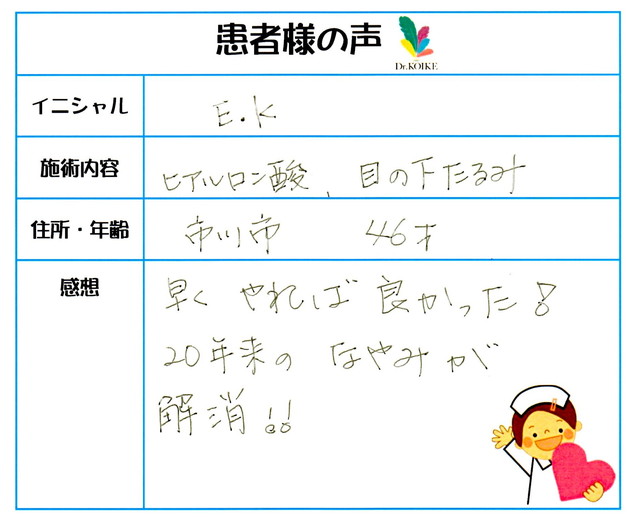 患者様の声
Dr.KOIKE
イニシャル
E.K
施術内容
ヒアルロン酸、目の下たるみ
住所・年齢
市川市 46才
感想
早くやれば良かった!
20年来のなやみが
解消!!